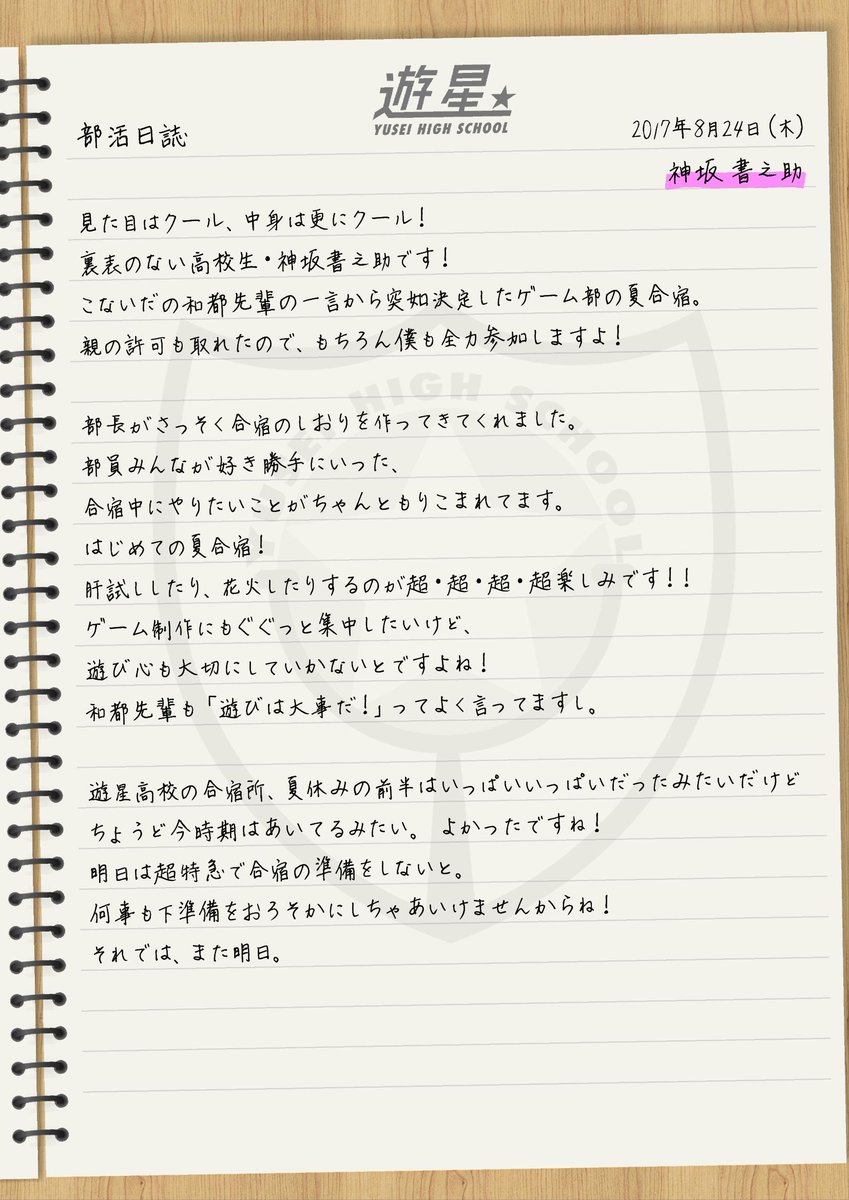 遊星★
YUSEI HIGH SCHOOL
部活日誌
2017年8月24日(木)
神坂書之助
見た目はクール、中身は更にクール!
裏表のない高校生・神坂書之助です!
こないだの和都先輩の一言から突如決定したゲーム部の夏合宿。
親の許可も取れたので、もちろん僕も全力参加しますよ!
部長がさっそく合宿のしおりを作ってきてくれました。
部員みんなが好き勝手にいった、
合宿中にやりたいことがちゃんともりこまれてます。
はじめての夏合宿!
肝試ししたり、花火したりするのが超・超・超・超楽しみです!!
ゲーム制作にもぐぐっと集中したいけど、
遊び心も大切にしていかないとですよね!
和都先輩も「遊びは大事だ!」ってよく言ってますし。
遊星高校の合宿所、夏休みの前半はいっぱいいっぱいだったみたいだけど
ちょうど今時期はあいてるみたい。 よかったですね!
明日は超特急で合宿の準備をしないと。
何事も下準備をおろそかにしちゃあいけませんからね!
それでは、また明日。
YUSEI HIGH SCHOOL